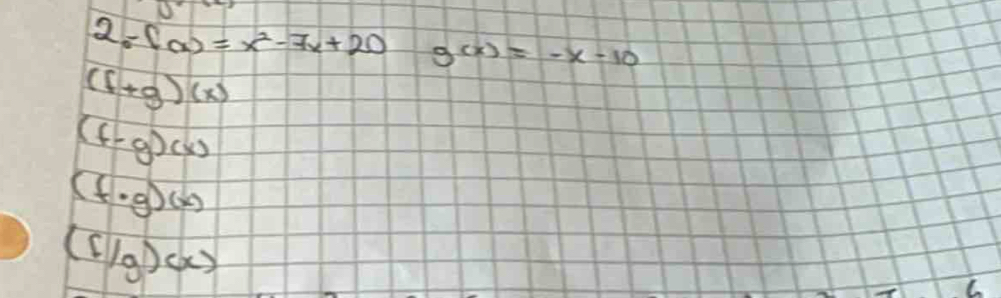 2.- f(x) = x² - 7x + 20 g(x) = -x - 10
(f+g)(x)
(f-g)(x)
(f·g)(x)
(f/g)(x)